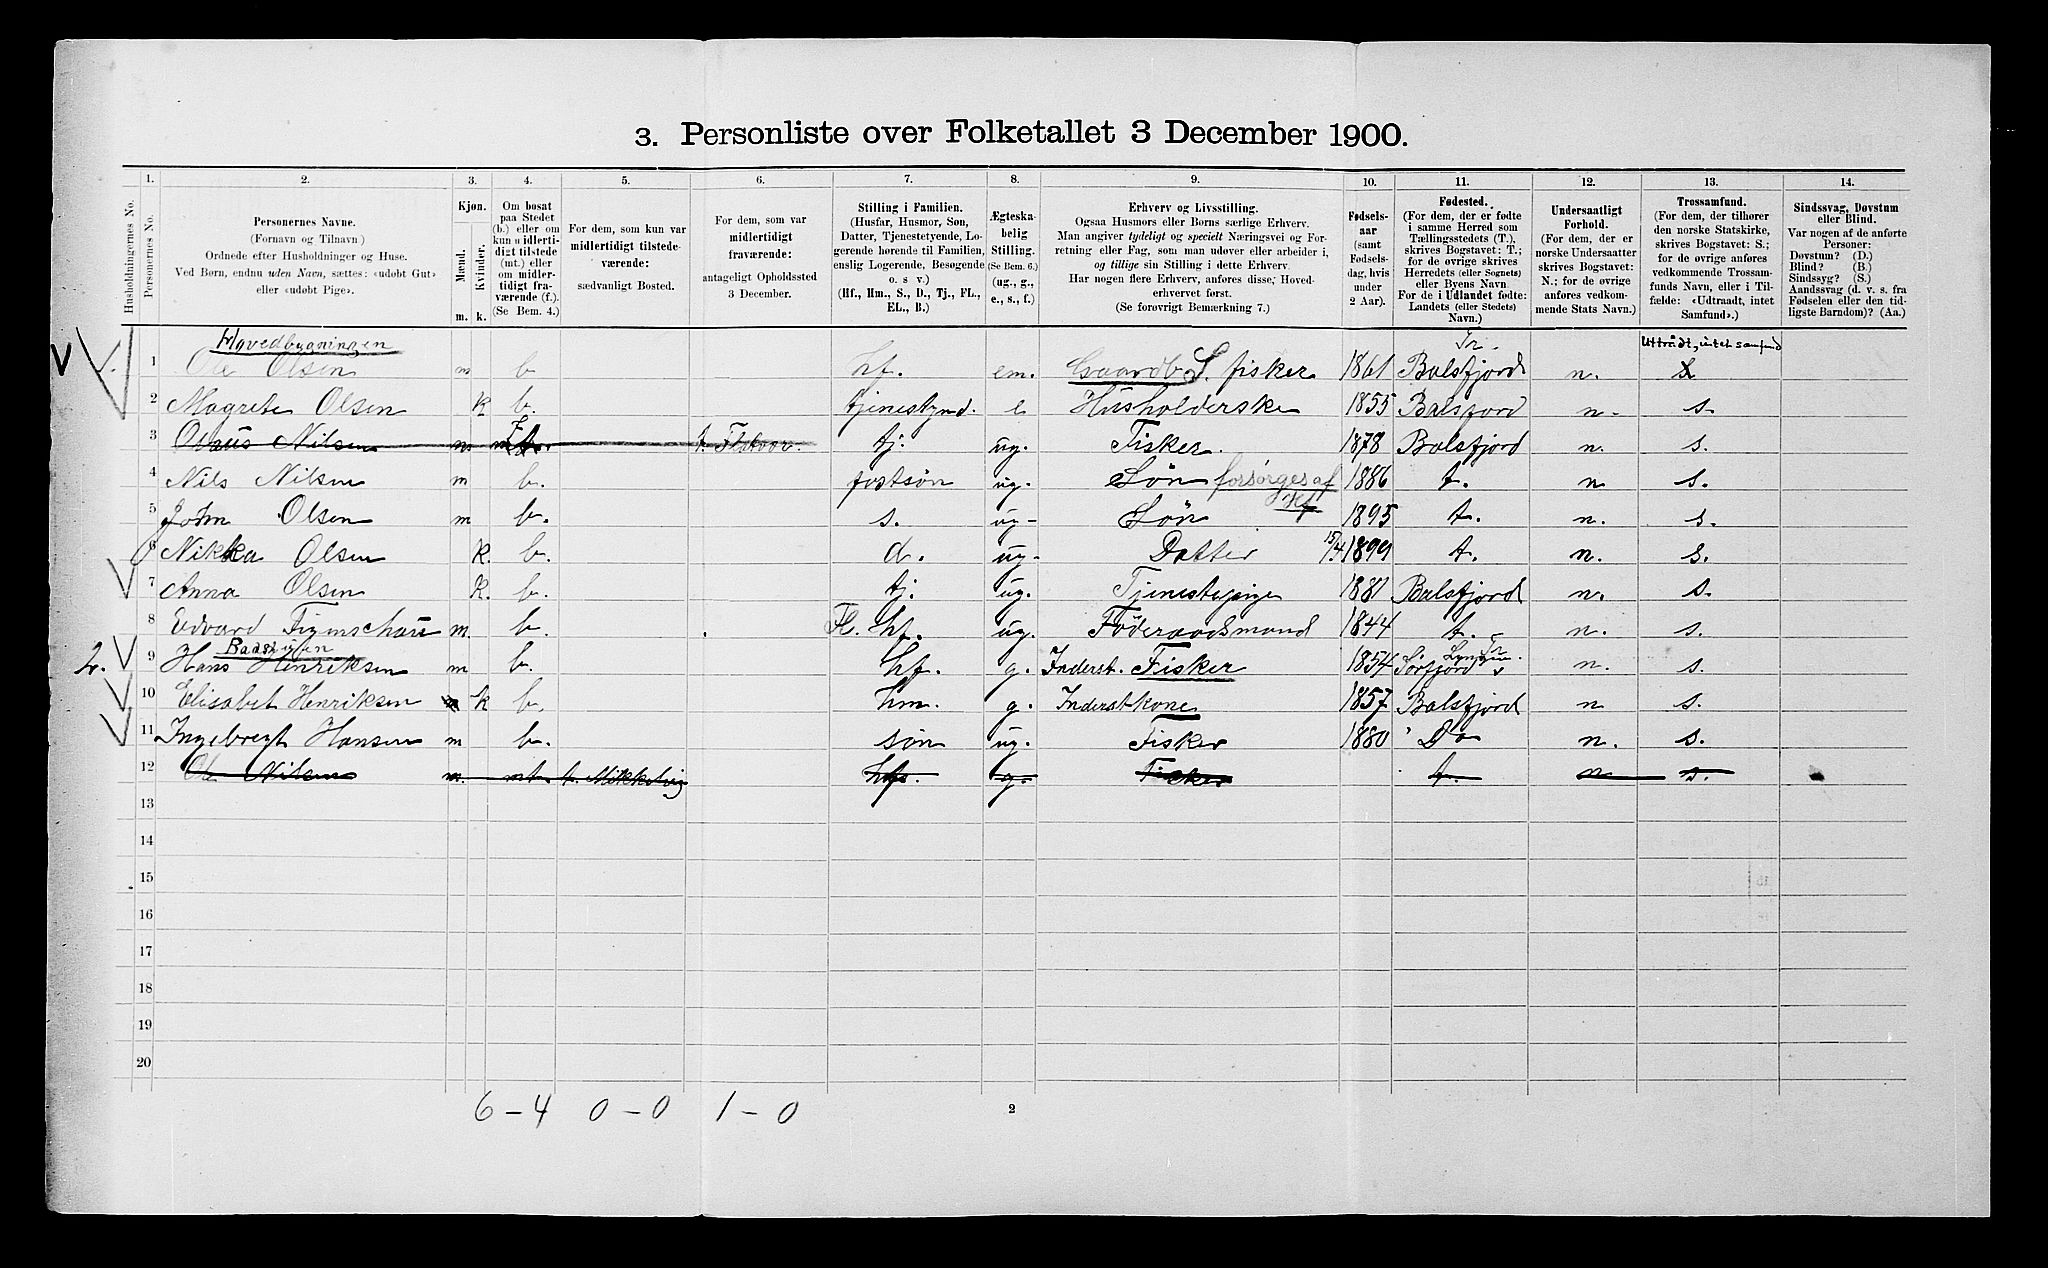 3. Personliste over Folketallet 3 December 1900.
Husholdningernes No.
1. Personernes No.
2. Personernes Navne. (Fornavn og Tilnavn) Ordnede efter Husholdninger og Huse. Ved Børn, endnu uden Navn, sættes: «udøbt Gut» eller «udøbt Pige».
3. Kjøn. Mænd. m. Kvinder. k.
4. Om bosat paa Stedet (b.) eller om kun midlertidigt tilstede (mt.) eller om midlertidigt fraværende (f.). (Se Bem. 4.)
5. For dem, som kun var midlertidigt tilstedeværende: sædvanligt Bosted.
6. For dem, som var midlertidigt fraværende: antageligt Opholdssted 3 December.
7. Stilling i Familien. (Husfar, Husmor, Søn, Datter, Tjenestetyende, Logerende hørende til Familien, enslig Logerende, Besøgende o. s v.) (Hf., Hm., S., D., Tj., FL., EL., B.)
8. Ægteskabelig Stilling. (Se Bem. 6.) (ug., g., e., s., f.)
9. Erhverv og Livsstilling. Ogsaa Husmors eller Børns særlige Erhverv. Man angiver tydeligt og specielt Næringsvei og Forretning eller Fag, som man udøver eller arbeider i, og tillige sin Stilling i dette Erhverv. Har nogen flere Erhverv, anføres disse, Hovederhvervet først. (Se forøvrigt Bemærkning 7.)
10. Fødselsaar (samt Fødselsdag, hvis under 2 Aar).
11. Fødested. (For dem, der er fødte i samme Herred som Tællingsstedets (T.), skrives Bogstavet: T.; for de øvrige skrives Herredets (eller Sognets) eller Byens Navn. For de i Udlandet fødte: Landets (eller Stedets) Navn.)
12. Undersaatligt Forhold. (For dem, der er norske Undersaatter skrives Bogstavet: N.; for de øvrige anføres vedkommende Stats Navn.)
13. Trossamfund. (For dem, der tilhører den norske Statskirke, skrives Bogstavet: S.; for de øvrige anføres vedkommende Trossamfunds Navn, eller i Tilfælde: «Udtraadt, intet Samfund».)
14. Sindssvag, Døvstum eller Blind. Var nogen af de anførte Personer: Døvstum? (D.) Blind? (B.) Sindssyg? (S.) Aandssvag (d. v. s. fra Fødselen eller den tidligste Barndom)? (Aa.)
Hovedbygningen Tr. Uttrådt, intet samfund
1. 1 Ole Olsen m b hf. em. Gaardb S. fisker 1861 Balsfjord n. s
2 Magrete Olsen k b. tjenestynd. e Husholderske 1855 Balsfjord n. s.
3 Olaus Nilsen m. f. tj. ug. Fisker. 1878 Balsfjord n. s.
4 Nils Nilsen m b. fostsøn ug. Søn forsørges af Hf 1886 t. n s.
5 John Olsen m b. s. ug- Søn 1895 t. n. s.
6 Nikka Olsen k. b. d. ug. Datter 15/4 1899 t. n. s.
7 Anna Olsen k. b. tj. ug. Tjenestepige 1881 Balsfjord n. s.
8 Edvard Figenschau m. b. Fl. hf. ug. Föderaadsmand 1844 t. n. s.
Badstuen
2. 9 Hans Henriksen m b. hf. g. Inderst. Fisker 1854 Sørfjord Lyngen Tr n. s.
10 Elisabet Henriksen k b. hm. g. Inderstkone 1857 Balsfjord n s.
11 Ingebregt Hansen m b. søn ug. Fisker 1880 Do n. s.
12 Ole Nilsen m. mt t. Mikkelvig hf. g. Fisker t. n s.
13
14
15
16
17
18
19
20
6 – 4 0 – 0 1 – 0
2